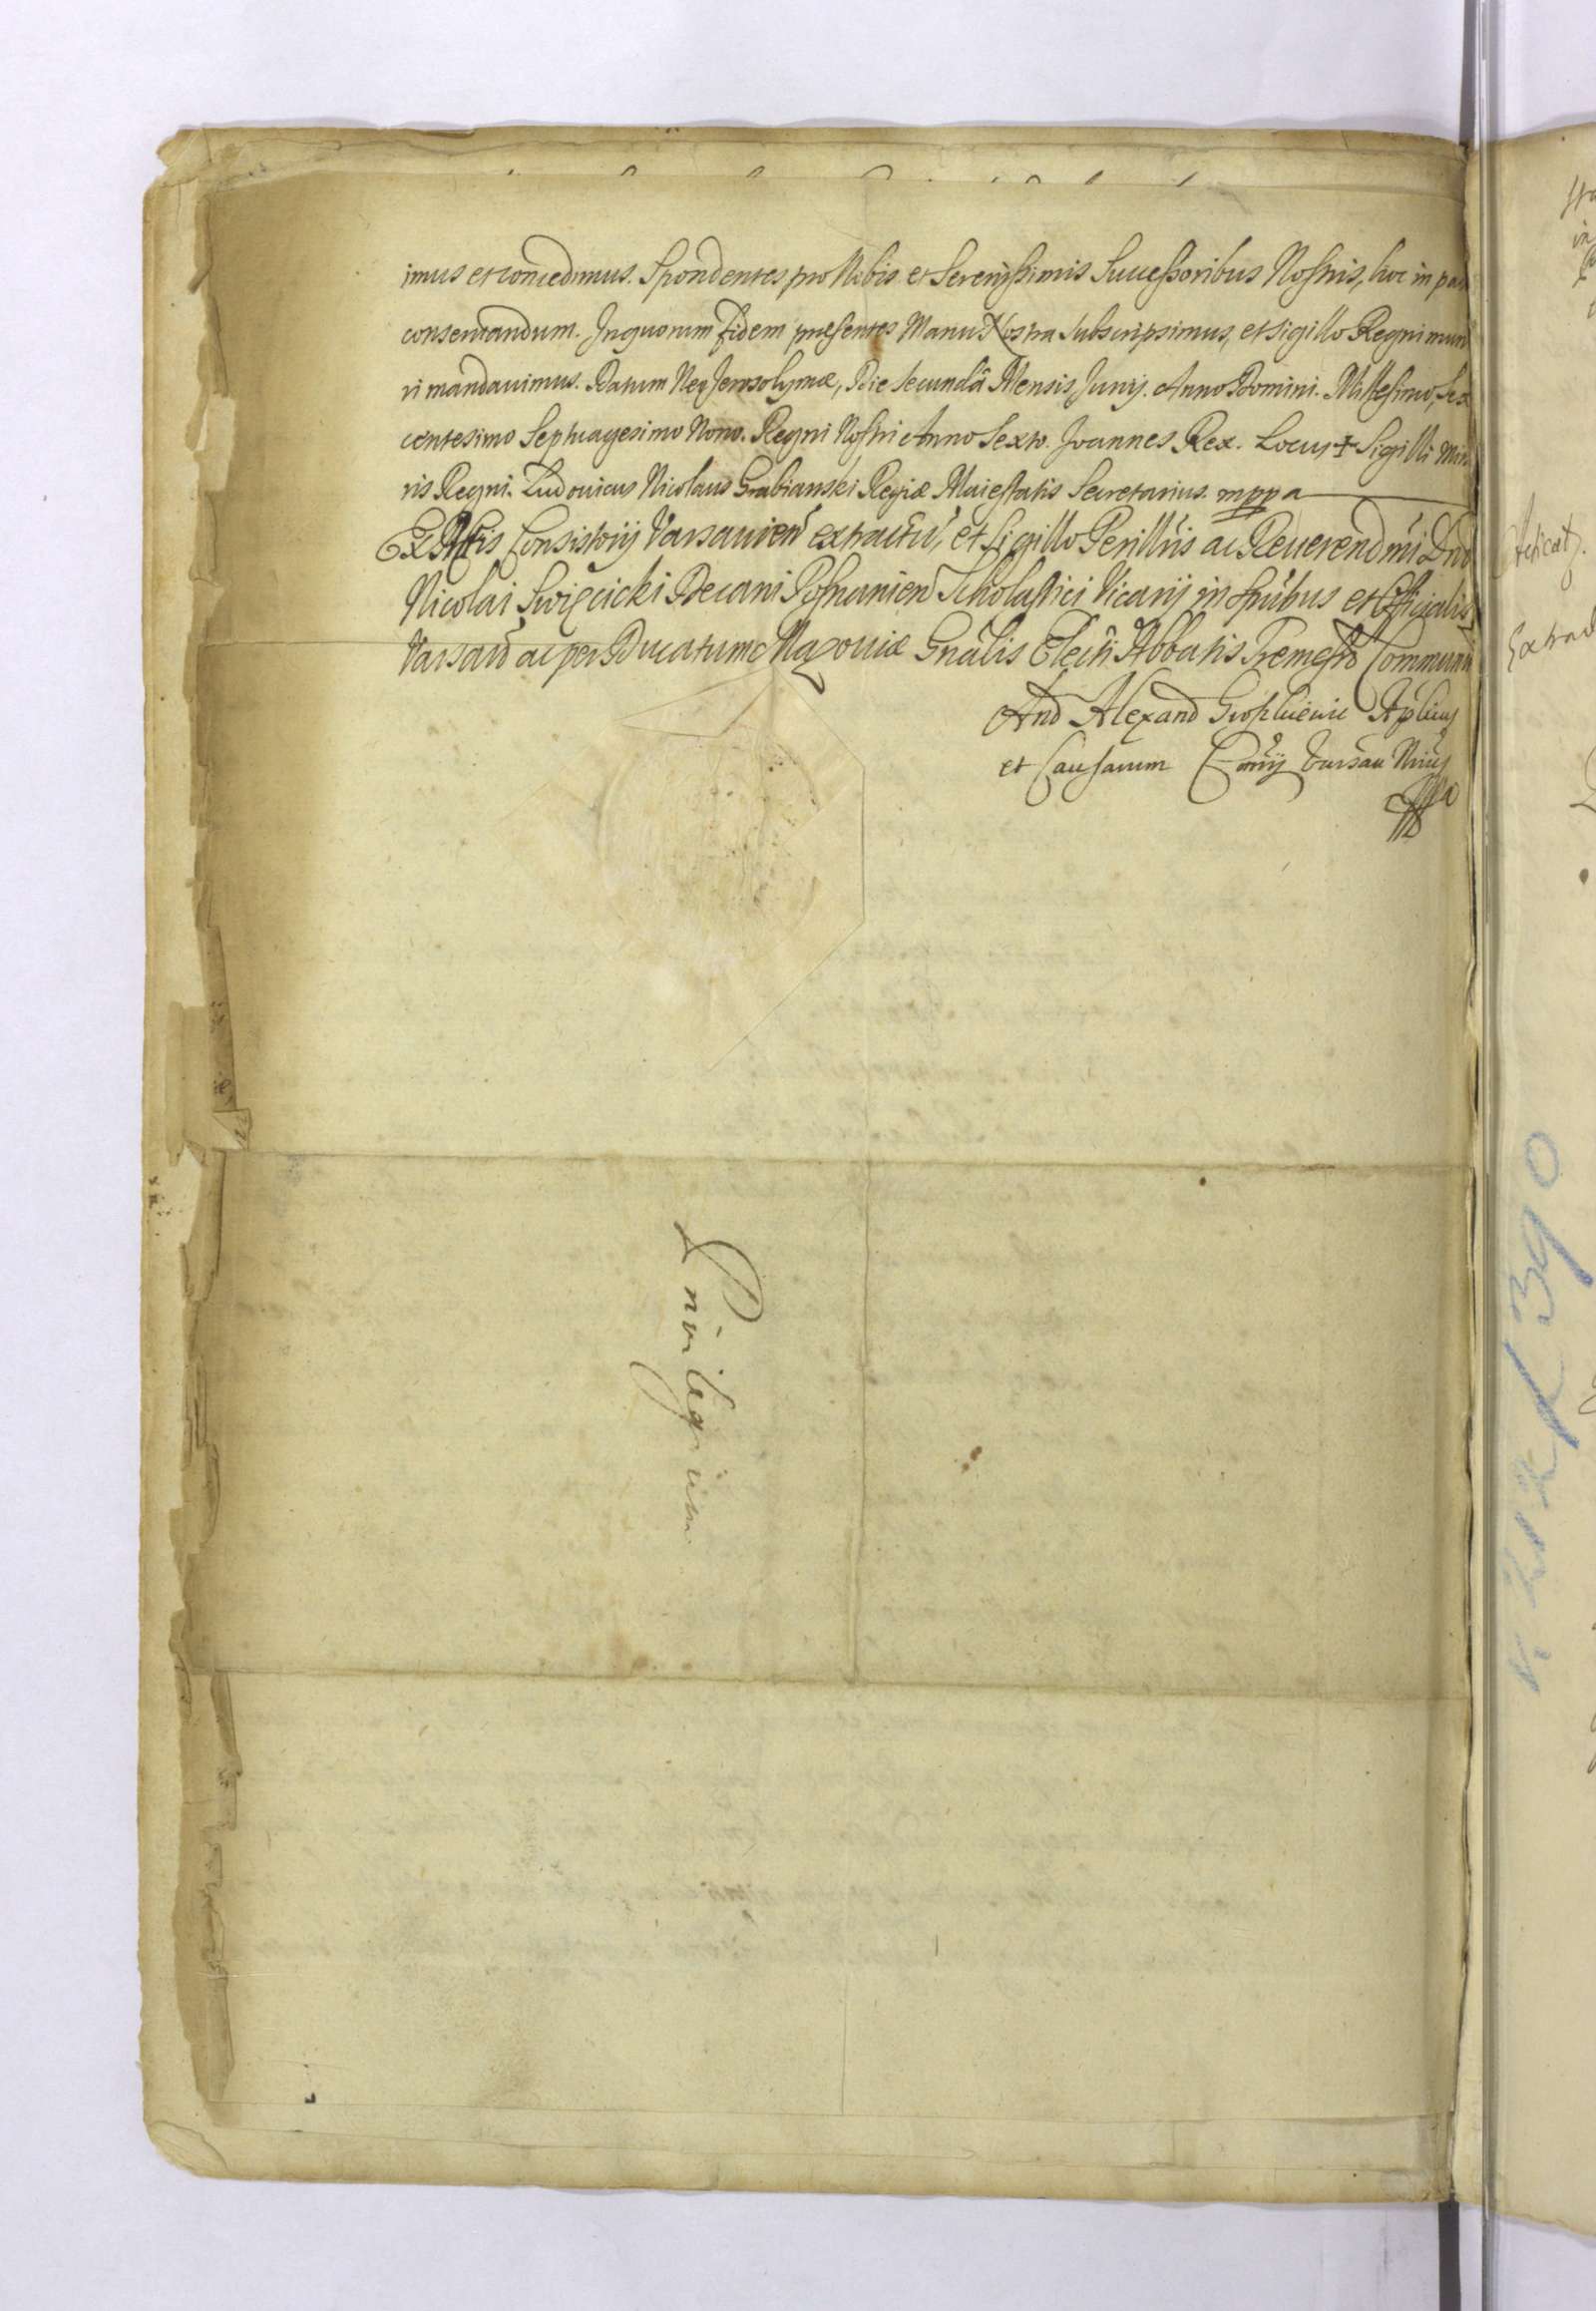 imus et concedimus. Spondentes pro Nobis et Serenissimis Successoribus Nostris, hoc in
conservandum. In quorum fidem præsentes Manu Nostra subscripsimus, et sigillo Regni muni
ri mandavimus. Datum Neo Jerosolymæ, Die secundâ Mensis Junij. Anno Domini. Millesimo, Sex
centesimo Septuagesimo Nono. Regni Nostri Anno Sexto. Joannes Rex. Locus + Sigilli Mino
ris Regni. Ludovicus Nicolaus Grabianski Regiæ Maiestatis Secretarius. mppa
Ex Actis Consistorij Varsavien extractu, et Sigillo Perillris ac Reverendmi Dni
Nicolai Swięcicki Decani Posnanien Scholastici Vicarij in Spūbus et Officialis
Varsavi ac per Ducatum Mazoviæ Gnālis Electi Abbatis Premesñ Communi
And Alexand Aplicus
et Causarum Varsav Nrius
Privilegium
Extrad
390